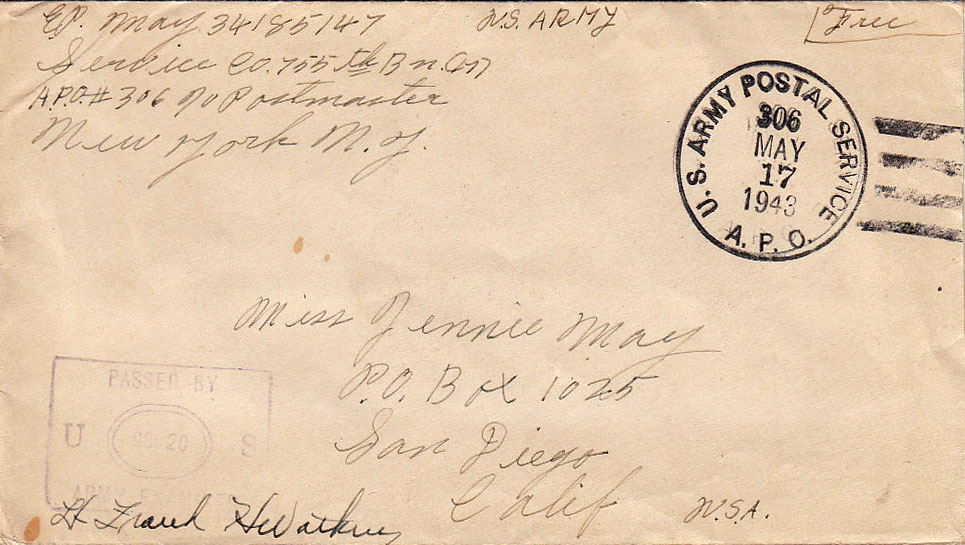 E.P. May 34185147 U.S. ARMY Free
Service Co. 755th Bn.
A.P.O.# 306 c/o Postmaster
New York N.Y.
U.S. ARMY POSTAL SERVICE
306
MAY
17
1943
A.P.O.
Miss Jennie May
P.O. Box 1025
San Diego
Calif U.S.A.
PASSED BY
U S
20
ARMY
Lt Frank